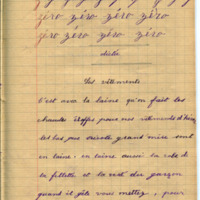 zéro zéro zéro zéro
zéro zéro zéro zéro
dictée
Les vêtements
C'est avec la laine qu'on fait les
chaudes étoffes pour nos vêtements d'hiver
les bas que tricote grand mère sont
en laine : en laine aussi la robe de
la fillette et la veste du garçon
quand il gèle vous mettez, pour